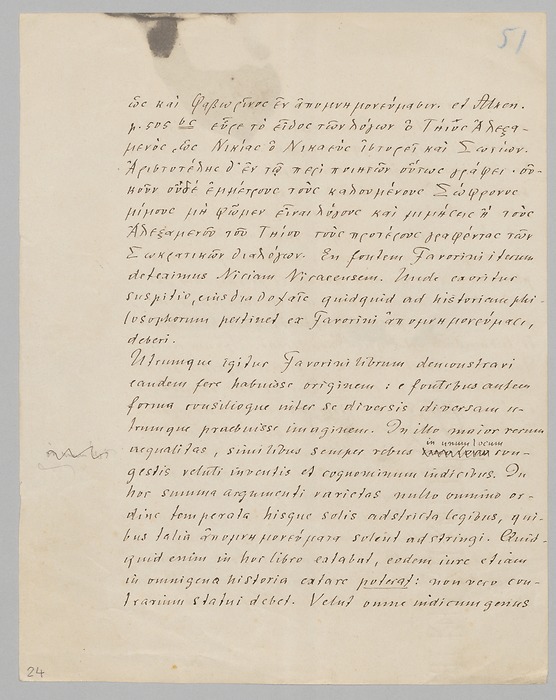 51
ὡς καὶ Φαβωρῖνος ἐν ἀπομνημονεύμασιν. et Athen.
p. 505 bc εὗρε τὸ εἶδος τῶν λόγων ὁ Τήϊος Ἀλεξα-
μενός, ὡς Νικίας ὁ Νικαεὺς ἱστορεῖ καὶ Σωτίων.
Ἀριστοτέλης δ' ἐν τῷ περὶ ποιητῶν οὕτως γράφει· οὐ-
κοῦν οὐδὲ ἐμμέτρους τοὺς καλουμένους Σώφρονος
μίμους μὴ φῶμεν εἶναι λόγους καὶ μιμήσεις ἢ τοὺς
Ἀλεξαμενοῦ τοῦ Τηΐου τοὺς προτέρους γραφέντας τῶν
Σωκρατικῶν διαλόγων. En fontem Favorini iterum
deteximus Niciam Nicaeensem. Unde exoritur
suspitio, eius διαδοχαῖς quidquid ad historiam phi-
losophorum pertinet ex Favorini ἀπομνημονεύμασι,
deberi.
Utrumque igitur Favorini librum demonstravi
eandem fere habuisse originem: e fontibus autem
forma consilioque inter se diversis diversam u-
trumque praebuisse imaginem. In illo maior rerum
aequalitas, similibus semper rebus in unum locum con-
gestis veluti inventis et cognominum indicibus. In
hoc summa argumenti varietas nullo omnino or-
dine temperata hisque solis adstricta legibus, qui-
bus talia ἀπομνημονεύματα solent adstringi. Quid-
quid enim in hoc libro extabat, eodem iure etiam
in omnigena historia extare poterat: non vero con-
trarium statui debet. Velut omne indicum genus
24